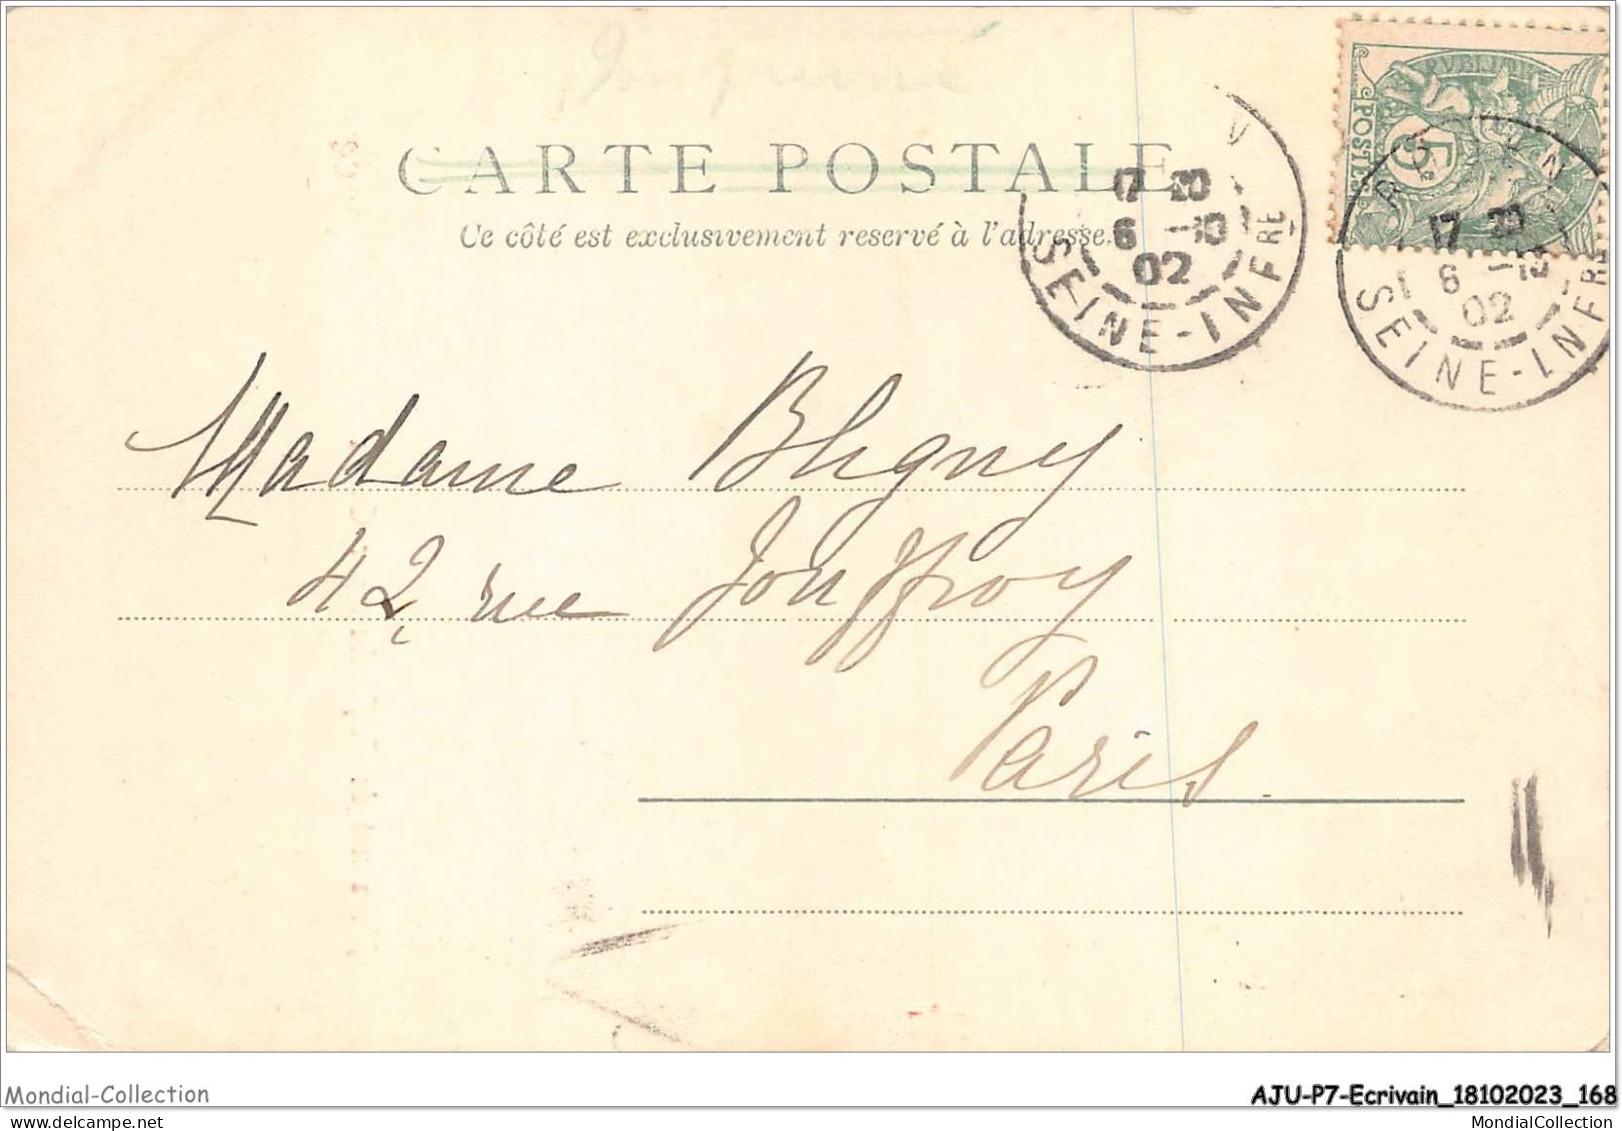 Imprimé
CARTE POSTALE
Ce côté est exclusivement reservé à l'adresse.
17 20
6 -10
02
SEINE-INFRE
POSTES
5
17 20
6 -10
02
SEINE-INFRE
Madame Bligny
42 rue Jouffroy
Paris
Mondial-Collection
AJU-P7-Ecrivain_18102023_168
MondialCollection
MondialCollection